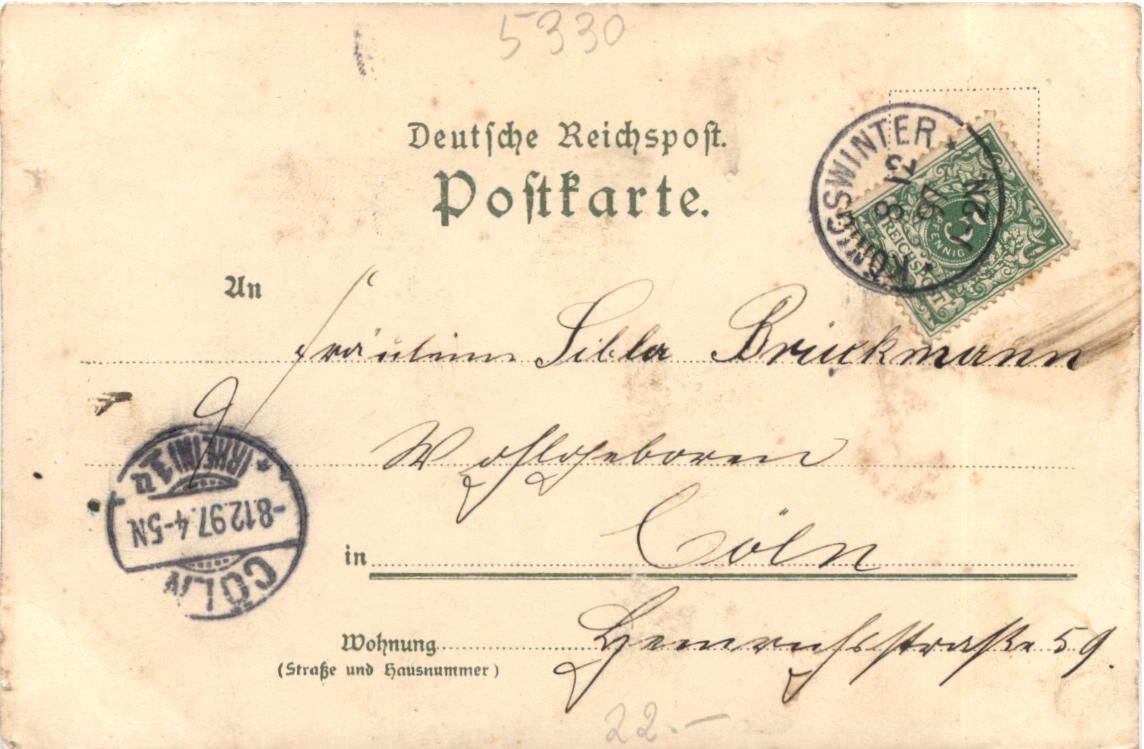 5330
Deutsche Reichspost.
Postkarte.
* KÖNIGSWINTER *
8 12
97
1-2N.
PFENNIG
REICHSPOST
An
Fräulein Sibla Brückmann
Wohlgeboren
in Cöln
Wohnung
(Straße und Hausnummer)
Heinrichsstraße 59.
CÖLN
-8.12.97.4-5N
* (RHEIN) 1
22.-